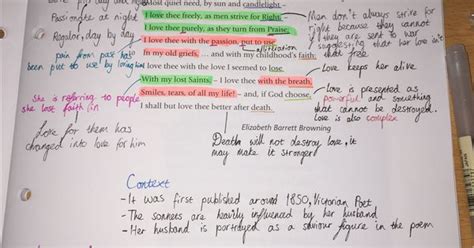 most quiet need, by sun and candlelight.
Passionate at night
Regular, day by day
I love thee freely, as men strive for Right;
I love thee purely, as they turn from Praise,
I love thee with the passion, put to use
In my old griefs, ... and with my childhood's faith:
I love thee with the love I seemed to lose
With my lost Saints, – I love thee with the breath,
Smiles, tears, of all my life! – and, if God choose,
I shall but love thee better after death.
Elizabeth Barrett Browning
Men don't always strive for
right because they cannot
they are sent to war
suggesting that her love is
that free.
pain from past
been put to use by loving him
Love keeps her alive
She is referring to people
she lost faith in
love is presented as
powerful and something
that cannot be destroyed.
Love is also complex
Love for them has
changed into love for him
Death will not destroy love, it
may make it stronger
Context
- It was first published around 1850, Victorian Poet
- The sonnets are heavily influenced by her husband
- Her husband is portrayed as a saviour figure in the poem